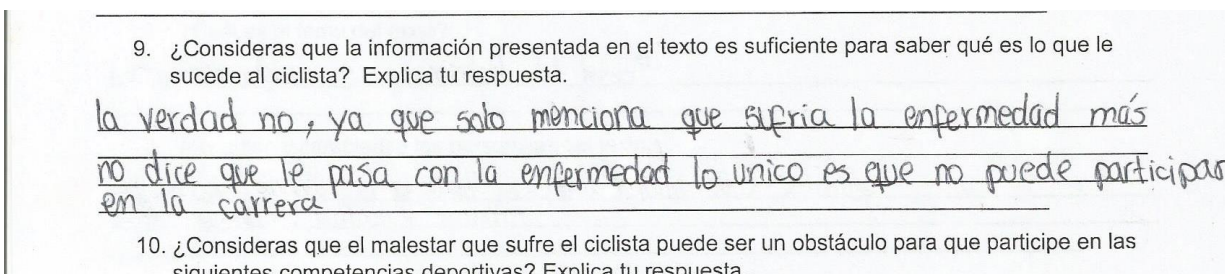 9. ¿Consideras que la información presentada en el texto es suficiente para saber qué es lo que le
sucede al ciclista? Explica tu respuesta.
la verdad no, ya que solo menciona que sufria la enfermedad más
no dice que le pasa con la enfermedad lo unico es que no puede participar
en la carrera
10. ¿Consideras que el malestar que sufre el ciclista puede ser un obstáculo para que participe en las
siguientes competencias deportivas? Explica tu respuesta